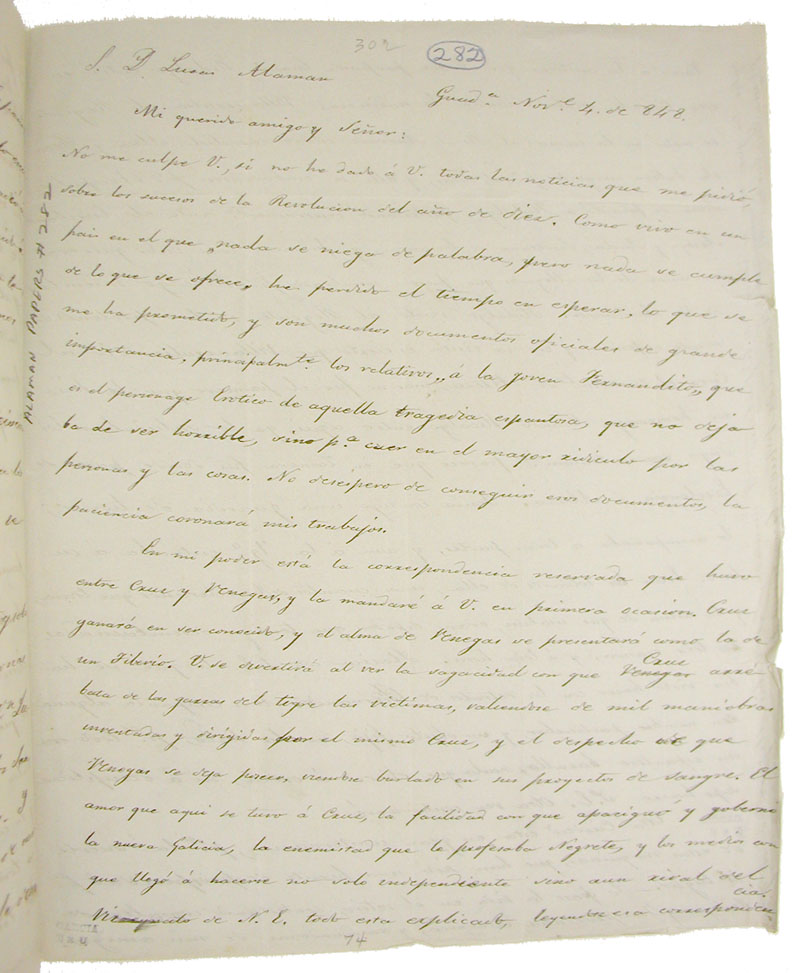 302
282
S. D. Lucas Alaman
Guad.ª Nov.e 4. de 848.
Mi querido amigo y Señor:
No me culpe V., si no he dado á V. todas las noticias que me pidió,
sobre los sucesos de la Revolucion del año de diez. Como vivo en un
pais en el que „nada se niega de palabra, pero nada se cumple
de lo que se ofrece„ he perdido el tiempo en esperar, lo que se
me ha prometido, y son muchos documentos oficiales de grande
importancia, principalm.te los relativos „á la joven Fernandito„ que
es el personage Erotico de aquella tragedia espantosa, que no deja
ba de ser horrible, sino p.ª caer en el mayor ridiculo por las
personas y las cosas. No desespero de conseguir esos documentos, la
paciencia coronará mis trabajos.
En mi poder está la correspondencia reservada que huvo
entre Cruz y Venegas, y la mandaré á V. en primera ocasion. Cruz
ganará en ser conocido, y el alma de Venegas se presentará como la de
un Tiberio. V. se divertirá al ver la sagacidad con que Venegas Cruz arre
bata de las garras del tigre las victimas, valiendose de mil maniobras
inventadas y dirigidas por el mismo Cruz, y el despecho de que
Venegas se deja poseer, viendose burlado en sus proyectos de sangre. El
amor que aqui se tuvo á Cruz, la facilidad con que apaciguó y gobernó
la nueva Galicia, la enemistad que le profesaba Negrete, y los medios con
que llegó á hacerse no solo independiente sino aun rival del
Vireynato de N. E. todo esta explicado, leyendose esa corresponden
cia.
74
ALAMAN PAPERS # 282